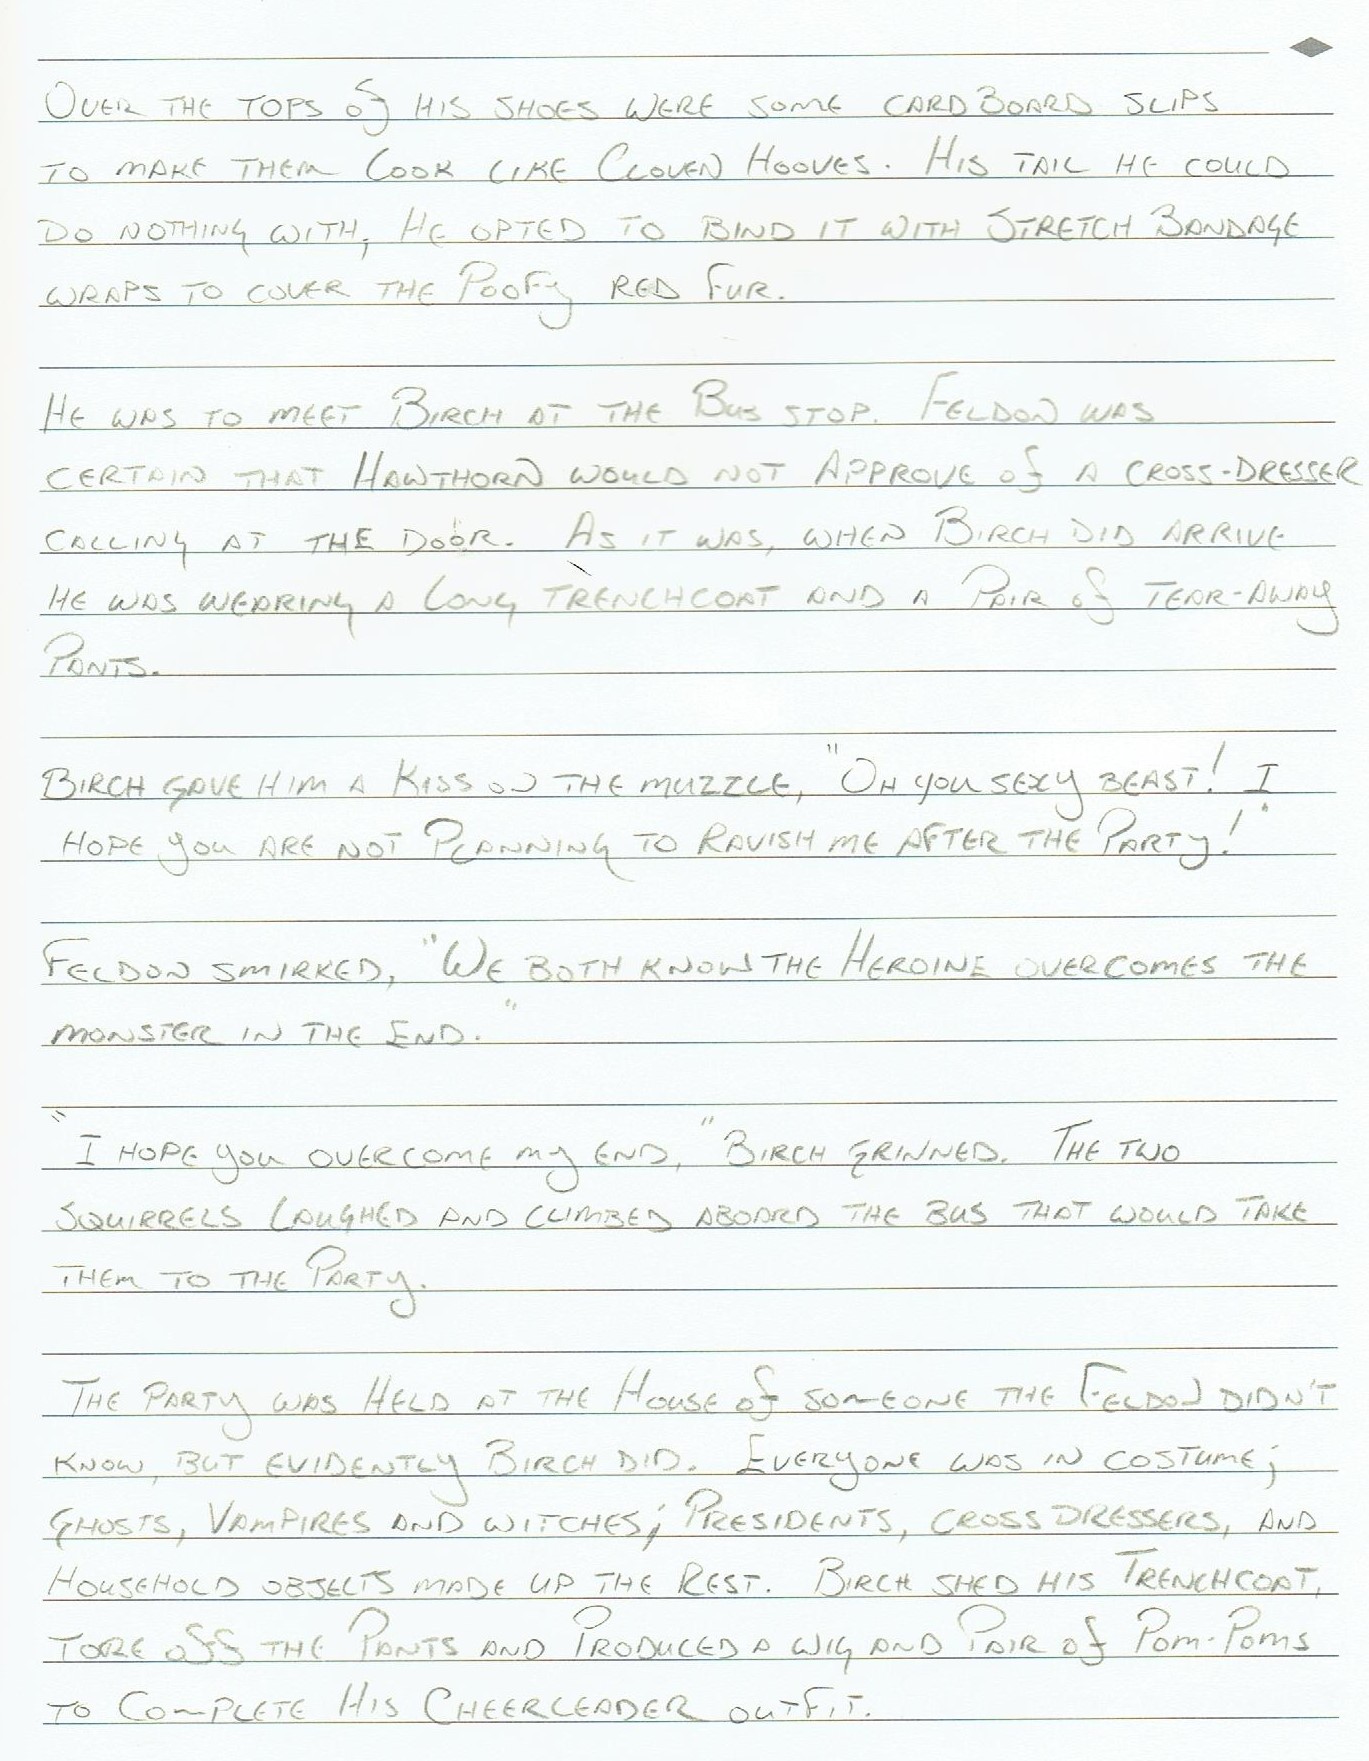 OVER THE TOPS of HIS SHOES WERE SOME CARDBOARD SLIPS
TO MAKE THEM LOOK LIKE CLOVEN HOOVES. HIS TAIL HE COULD
DO NOTHING WITH, HE OPTED TO BIND IT WITH STRETCH BANDAGE
WRAPS TO COVER THE POOFy RED FUR.
HE WAS TO MEET BIRCH AT THE BUS STOP. FELDON WAS
CERTAIN THAT HAWTHORN WOULD NOT APPROVE of A CROSS-DRESSER
CALLING AT THE DOOR. AS IT WAS, WHEN BIRCH DID ARRIVE
HE WAS WEARING A LONG TRENCHCOAT AND A PAIR of TEAR-AWAY
PANTS.
BIRCH GAVE HIM A KISS ON THE MUZZLE, "OH you SEXY BEAST! I
HOPE you ARE NOT PLANNING TO RAVISH ME AFTER THE PARTY!"
FELDON SMIRKED, "WE BOTH KNOW THE HEROINE OVERCOMES THE
MONSTER IN THE END."
"I HOPE you OVERCOME my END," BIRCH GRINNED. THE TWO
SQUIRRELS LAUGHED AND CLIMBED ABOARD THE BUS THAT WOULD TAKE
THEM TO THE PARTY.
THE PARTY WAS HELD AT THE HOUSE of SOMEONE THE FELDON DIDN'T
KNOW, BUT EVIDENTLY BIRCH DID. EVERYONE WAS IN COSTUME;
GHOSTS, VAMPIRES AND WITCHES; PRESIDENTS, CROSS DRESSERS, AND
HOUSEHOLD OBJECTS MADE UP THE REST. BIRCH SHED HIS TRENCHCOAT,
TORE off THE PANTS AND PRODUCED A WIG AND PAIR of POM-POMS
TO COMPLETE HIS CHEERLEADER OUTFIT.